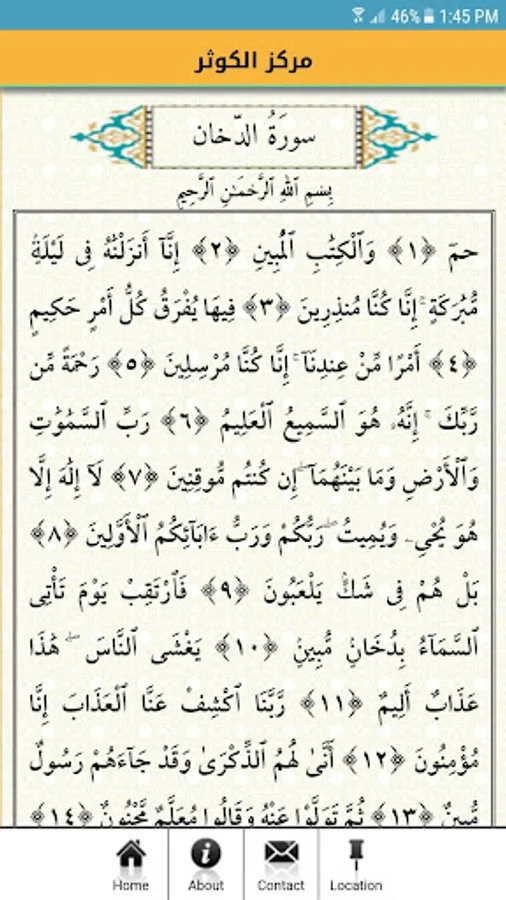 46% 1:45 PM
مركز الكوثر
سورَةُ الدّخان
بِسْمِ ٱللَّهِ ٱلرَّحْمَـٰنِ ٱلرَّحِيمِ
حمٓ ﴿١﴾ وَٱلْكِتَـٰبِ ٱلْمُبِينِ ﴿٢﴾ إِنَّآ أَنزَلْنَـٰهُ فِى لَيْلَةٍۢ
مُّبَـٰرَكَةٍ ۚ إِنَّا كُنَّا مُنذِرِينَ ﴿٣﴾ فِيهَا يُفْرَقُ كُلُّ أَمْرٍ حَكِيمٍ
﴿٤﴾ أَمْرًۭا مِّنْ عِندِنَآ ۚ إِنَّا كُنَّا مُرْسِلِينَ ﴿٥﴾ رَحْمَةًۭ مِّن
رَّبِّكَ ۚ إِنَّهُۥ هُوَ ٱلسَّمِيعُ ٱلْعَلِيمُ ﴿٦﴾ رَبِّ ٱلسَّمَـٰوَٰتِ
وَٱلْأَرْضِ وَمَا بَيْنَهُمَآ ۖ إِن كُنتُم مُّوقِنِينَ ﴿٧﴾ لَآ إِلَـٰهَ إِلَّا
هُوَ يُحْىِۦ وَيُمِيتُ ۖ رَبُّكُمْ وَرَبُّ ءَابَآئِكُمُ ٱلْأَوَّلِينَ ﴿٨﴾
بَلْ هُمْ فِى شَكٍّۢ يَلْعَبُونَ ﴿٩﴾ فَٱرْتَقِبْ يَوْمَ تَأْتِى
ٱلسَّمَآءُ بِدُخَانٍۢ مُّبِينٍۢ ﴿١٠﴾ يَغْشَى ٱلنَّاسَ ۖ هَـٰذَا
عَذَابٌ أَلِيمٌۭ ﴿١١﴾ رَّبَّنَا ٱكْشِفْ عَنَّا ٱلْعَذَابَ إِنَّا
مُؤْمِنُونَ ﴿١٢﴾ أَنَّىٰ لَهُمُ ٱلذِّكْرَىٰ وَقَدْ جَآءَهُمْ رَسُولٌۭ
مُّبِينٌۭ ﴿١٣﴾ ثُمَّ تَوَلَّوْا۟ عَنْهُ وَقَالُوا۟ مُعَلَّمٌۭ مَّجْنُونٌ ﴿١٤﴾
Home About Contact Location